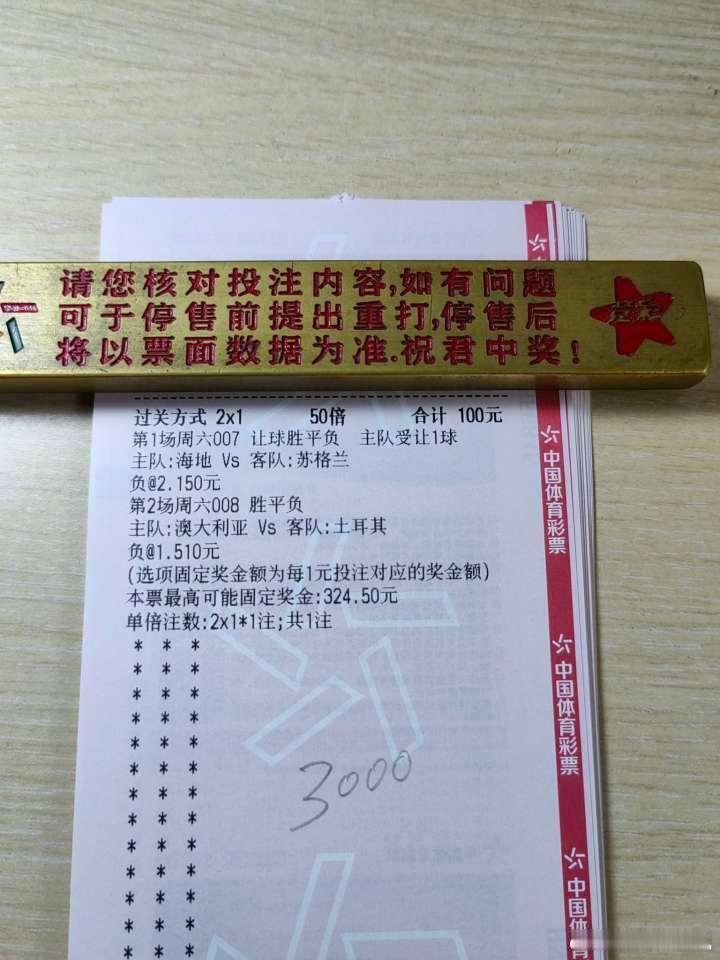 请您核对投注内容,如有问题
可于停售前提出重打,停售后
将以票面数据为准.祝君中奖!
过关方式 2x1 50倍 合计 100元
第1场周六007 让球胜平负 主队受让1球
主队:海地 Vs 客队:苏格兰
负@2.150元
第2场周六008 胜平负
主队:澳大利亚 Vs 客队:土耳其
负@1.510元
(选项固定奖金额为每1元投注对应的奖金额)
本票最高可能固定奖金:324.50元
单倍注数:2x1*1注;共1注
* * *
* * *
* * *
* * *
* * *
* * *
* * *
* * *
* * *
* * *
* * *
* * *
* * *
3000
中国体育彩票
中国体育彩票
中国体育